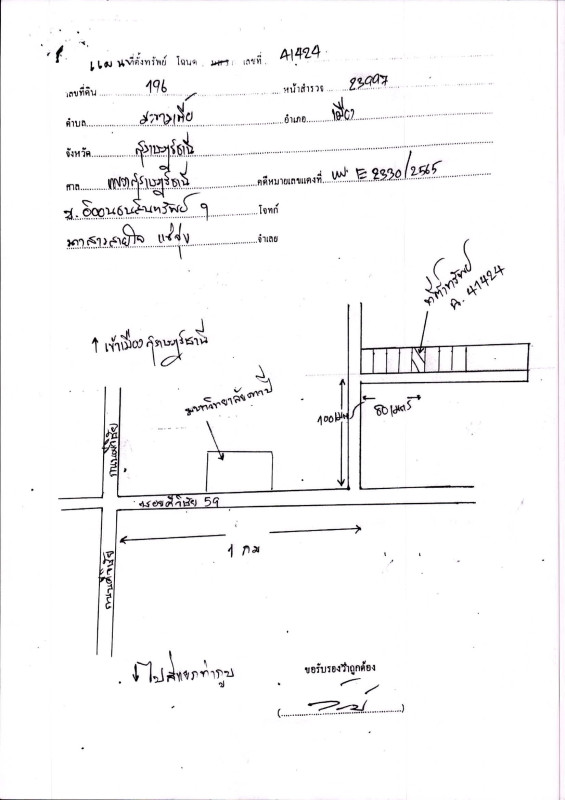 แผนที่ตั้งทรัพย์ โฉนด เลขที่ 41424
เลขที่ดิน 196 หน้าสำรวจ 23997
ตำบล มะขามเตี้ย อำเภอ เมือง
จังหวัด สุราษฎร์ธานี
ศาล แพ่งสุราษฎร์ธานี คดีหมายเลขแดงที่ ผบ E 2330/2565
ธ.ออมสิน โจทก์
นางสาวสายใจ จำเลย
ที่ตั้งทรัพย์
ฉ. 41424
↑ เข้าเมืองสุราษฎร์ธานี
มหาวิทยาลัยตาปี
100 เมตร
80 เมตร
ถนนศรีวิชัย
ซอยศรีวิชัย 59
1 กม
ถนนศรีวิชัย
↓ ไปสี่แยกท่ากูบ
ขอรับรองว่าถูกต้อง